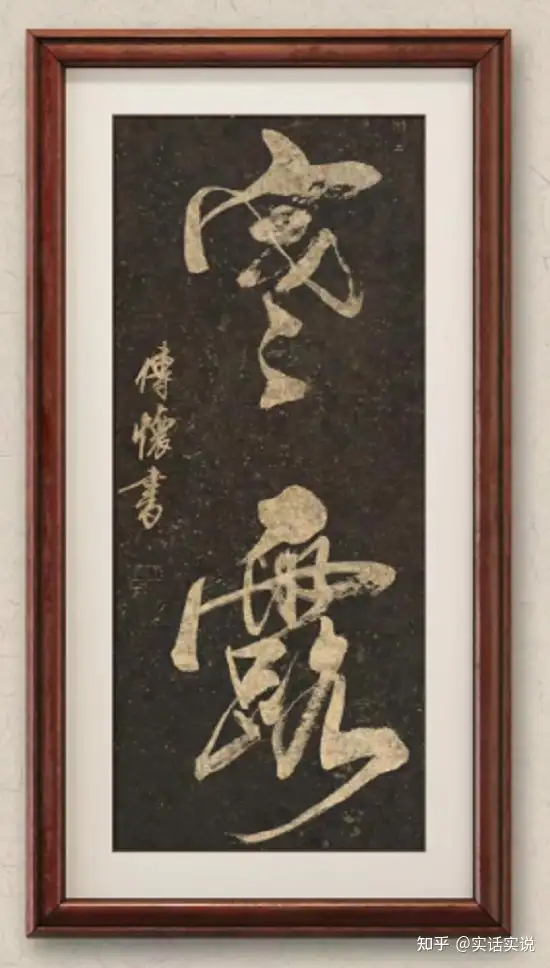 寒露
傅懷書
知乎 @实话实说